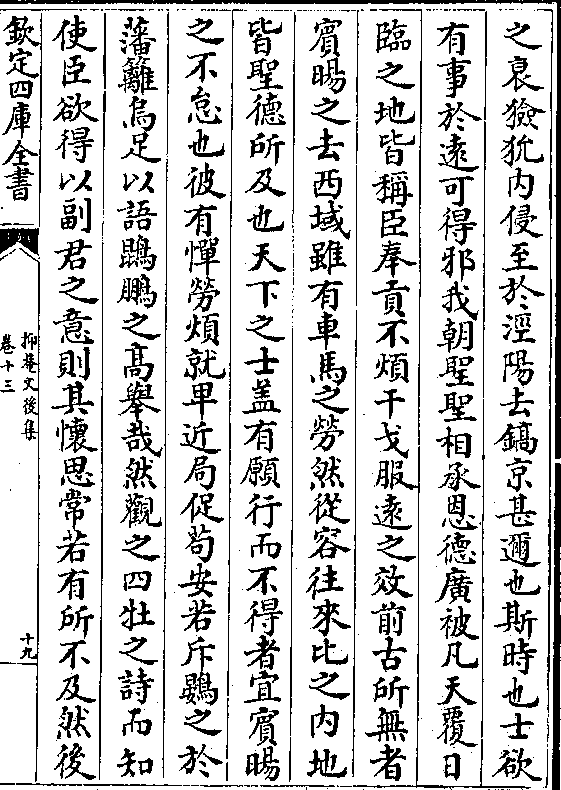 之衰獫狁内侵至於涇陽去鎬京甚邇也斯時也士欲
有事於遠可得邪我朝聖聖相承恩德廣被凡天覆日
臨之地皆稱臣奉貢不煩干戈服遠之效前古所無者
賓暘之去西域雖有車馬之勞然從容往來比之内地
皆聖德所及也天下之士盖有願行而不得者宜賓暘
之不怠也彼有憚勞煩就卑近局促苟安若斥鷃之於
藩籬烏足以語鵾鵬之髙舉哉然觀之四牡之詩而知
使臣欲得以副君之意則其懷思常若有所不及然後
欽定四庫全書
抑菴文後集
卷十三
十九